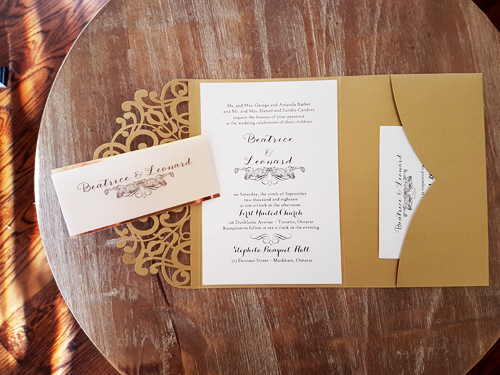 Mr. and Mrs. George and Amanda Barber
and Mr. and Mrs. Daniel and Sandra Candres
request the honour of your presence
at the wedding celebration of their children
Beatrice
&
Leonard
on Saturday, the ninth of September
two thousand and eighteen
at one o'clock in the afternoon
First United Church
126 Dunblaine Avenue - Toronto, Ontario
Reception to follow at six o'clock in the evening
Stephile Banquet Hall
123 Denison Street - Markham, Ontario
Beatrice & Leonard
Beatrice & Leonard